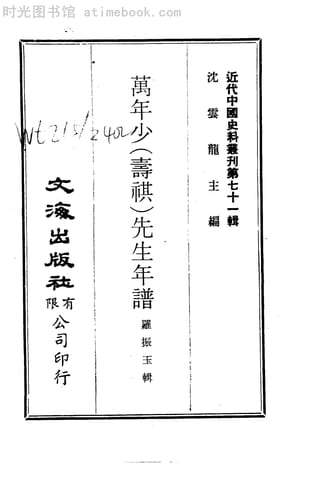 时光图书馆 atimebook.com
近代中國史料叢刊第七十一輯
沈雲龍主編
萬年少(壽祺)先生年譜
羅振玉輯
文海出版社
有限
公司印行